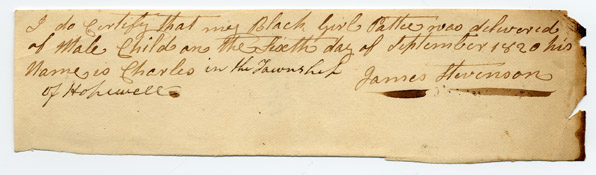 I do Certify that my Black Girl Patte was delivered
of Male Child on the Sixth day of September 1820 his
Name is Charles in the Township
of Hopewell
James Stevenson